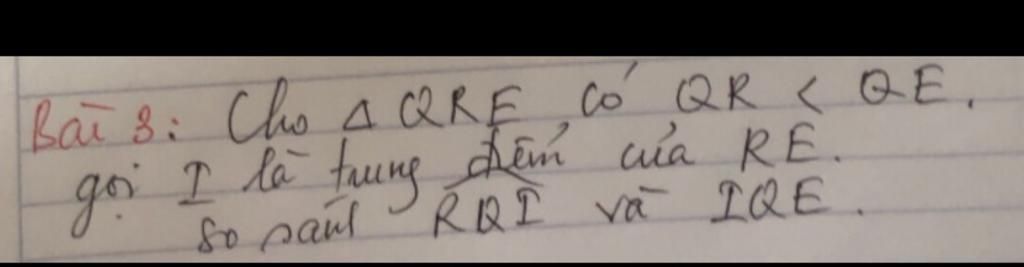 Bài 3: Cho Δ QRE có QR < QE.
gọi I là trung điểm của RE.
so sánh RQI và IQE.